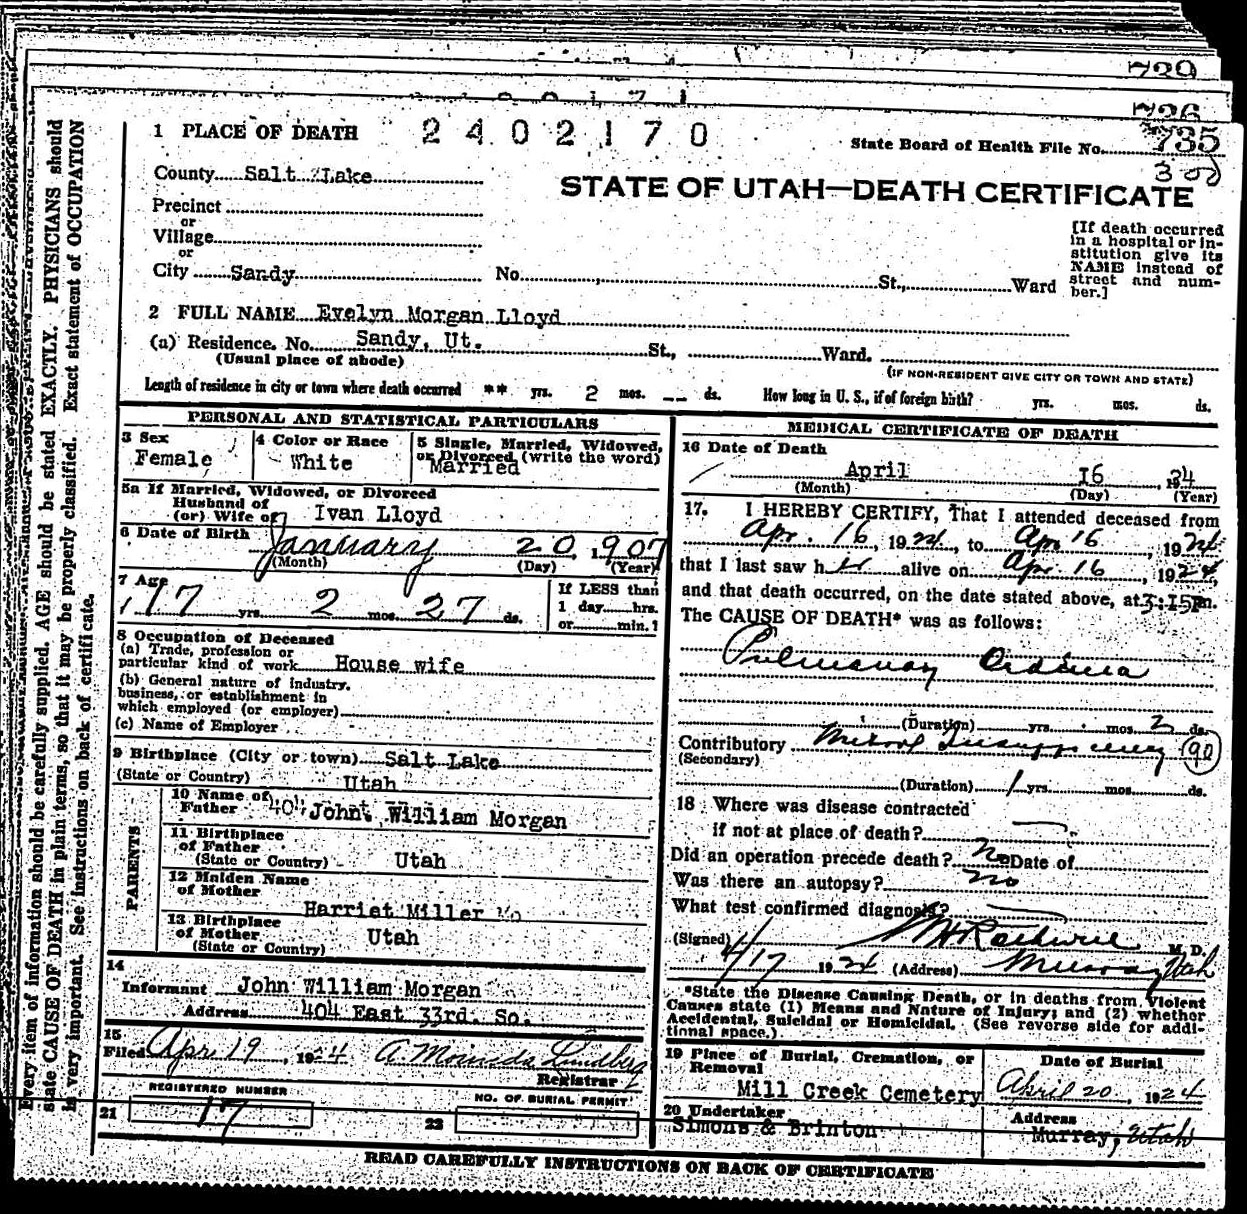 739
736
2402170
State Board of Health File No. 735
1 PLACE OF DEATH
County Salt Lake
STATE OF UTAH—DEATH CERTIFICATE
Precinct
or
Village
or
City Sandy No. St., Ward
[If death occurred
in a hospital or in-
stitution give its
NAME instead of
street and num-
ber.]
2 FULL NAME Evelyn Morgan Lloyd
(a) Residence. No. Sandy, Ut. St., Ward.
(Usual place of abode)
(IF NON-RESIDENT GIVE CITY OR TOWN AND STATE)
Length of residence in city or town where death occurred ** yrs. 2 mos. -- ds. How long in U. S., if of foreign birth? yrs. mos. ds.
PERSONAL AND STATISTICAL PARTICULARS
3 Sex
Female
4 Color or Race
White
5 Single, Married, Widowed,
or Divorced (write the word)
Married
5a If Married, Widowed, or Divorced
Husband of
(or) Wife of Ivan Lloyd
6 Date of Birth January 20, 1907
(Month) (Day) (Year)
7 Age
17 yrs. 2 mos. 27 ds.
If LESS than
1 day hrs.
or min.?
8 Occupation of Deceased
(a) Trade, profession or
particular kind of work House wife
(b) General nature of industry,
business, or establishment in
which employed (or employer)
(c) Name of Employer
9 Birthplace (City or town) Salt Lake
(State or Country) Utah
PARENTS
10 Name of
Father John William Morgan
11 Birthplace
of Father
(State or Country) Utah
12 Maiden Name
of Mother
Harriet Miller
13 Birthplace
of Mother
(State or Country) Utah
14
Informant John William Morgan
Address 404 East 33rd. So.
15
Filed Apr 19, 1924
Registrar
REGISTERED NUMBER
21 17
NO. OF BURIAL PERMIT
22
MEDICAL CERTIFICATE OF DEATH
16 Date of Death
April 16, 1924
(Month) (Day) (Year)
17. I HEREBY CERTIFY, That I attended deceased from
Apr. 16, 1924, to Apr 16, 1924
that I last saw her alive on Apr. 16, 1924,
and that death occurred, on the date stated above, at 3:15 Pm.
The CAUSE OF DEATH* was as follows:
Pulmonary Oedema
(Duration) yrs. mos. 2 ds.
Contributory Mitral Insufficiency 90
(Secondary)
(Duration) 1 yrs. mos. ds.
18 Where was disease contracted
if not at place of death?
Did an operation precede death? No Date of
Was there an autopsy? no
What test confirmed diagnosis?
(Signed) M. D.
4/17 1924 (Address) Murray Utah
*State the Disease Causing Death, or in deaths from Violent
Causes state (1) Means and Nature of Injury; and (2) whether
Accidental, Suicidal or Homicidal. (See reverse side for addi-
tional space.)
19 Place of Burial, Cremation, or
Removal
Mill Creek Cemetery
Date of Burial
April 20, 1924
20 Undertaker
Simons & Brinton
Address
Murray, Utah
READ CAREFULLY INSTRUCTIONS ON BACK OF CERTIFICATE
Every item of information should be carefully supplied. AGE should be stated EXACTLY. PHYSICIANS should
state CAUSE OF DEATH in plain terms, so that it may be properly classified. Exact statement of OCCUPATION
is very important. See instructions on back of certificate.